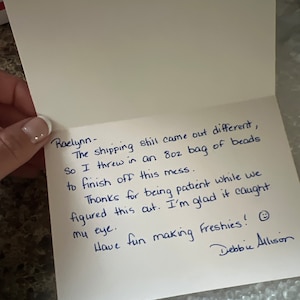 Raelynn-
The shipping still came out different,
so I threw in an 8oz bag of beads
to finish off this mess.
Thanks for being patient while we
figured this out. I'm glad it caught
my eye.
Have fun making freshies! ☺
Debbie Allison